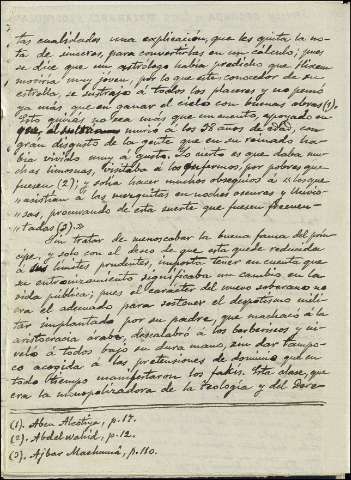 tas cualidades una explicación, que les quita la no-
ta de sinceras, para convertirlas en un cálculo; pues
se dice que un astrólogo había predicho que Hixem
moriría muy jóven, por lo que este, conocedor de su
estrella, se sustrajo á todos los placeres y no pensó
ya más que en ganar el cielo con buenas obras (1).
Esto quizás no sea más que un cuento, apoyado en
que, murió a los 38 años de edad, con
gran disgusto de la gente que en su reinado ha-
bía vivido muy á gusto. Lo cierto es que daba mu-
chas limosnas, visitaba á los enfermos, por pobres que
fuesen (2), "y solía hacer muchos obsequios á los que
"asistían á las mezquitas en noches oscuras y lluvio-
"sas, procurando de esta suerte que fuesen frecuen-
"tadas (3)."
Sin tratar de menoscabar la buena fama del prín-
cipe, y solo con el deseo de que esta quede reducida
á sus límites prudentes, importa tener en cuenta que
su entronizamiento significaba un cambio en la
vida pública; pues el carácter del nuevo soberano no
era el adecuado para sostener el despotismo mili-
tar implantado por su padre, que machacó á la
aristocracia árabe, descalabró á los berberiscos y ni-
veló á todos bajo su dura mano, sin dar tampo-
co acogida á las pretensiones de dominio que en
todo tiempo manifestaron los fakís. Esta clase, que
era la monopolizadora de la Teología y del Dere-
(1). Aben Alcotiya, p. 17.
(2). Abdelwahid, p. 12.
(3). Ajbar Machmuâ, p. 110.